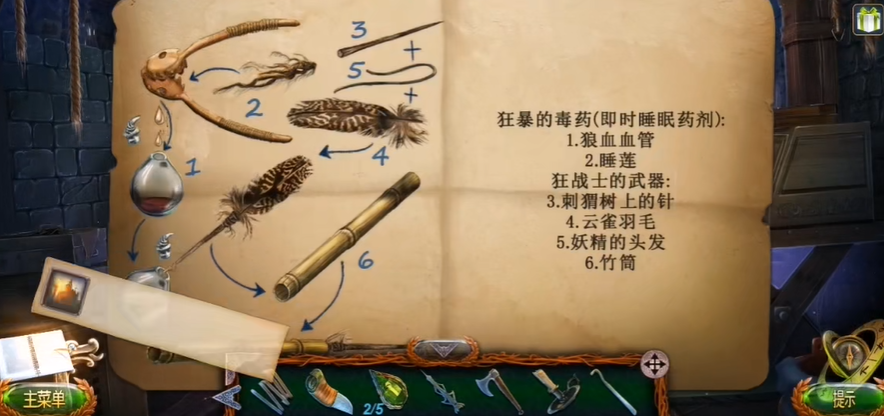 3
5
2
4
1
6
狂暴的毒药(即时睡眠药剂):
1.狼血血管
2.睡莲
狂战士的武器:
3.刺猬树上的针
4.云雀羽毛
5.妖精的头发
6.竹筒
2/5
主菜单
提示